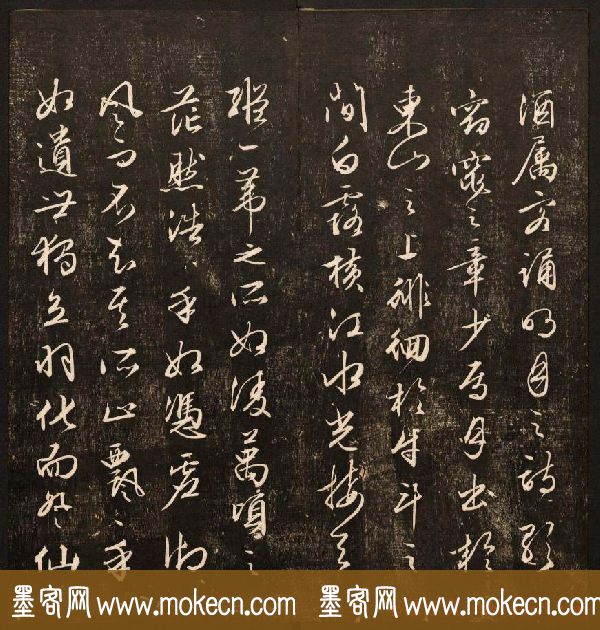 酒属客誦明月之詩歌
窈窕之章少焉月出於
東山之上徘徊於牛斗之
間白露横江水光接天
縱一葦之所如凌萬頃之
茫然浩〻乎如馮虚御
風而不知其所止飄〻乎
如遺世獨立羽化而登仙
墨客网 www.mokecn.com 墨客网 www.mokecn.com